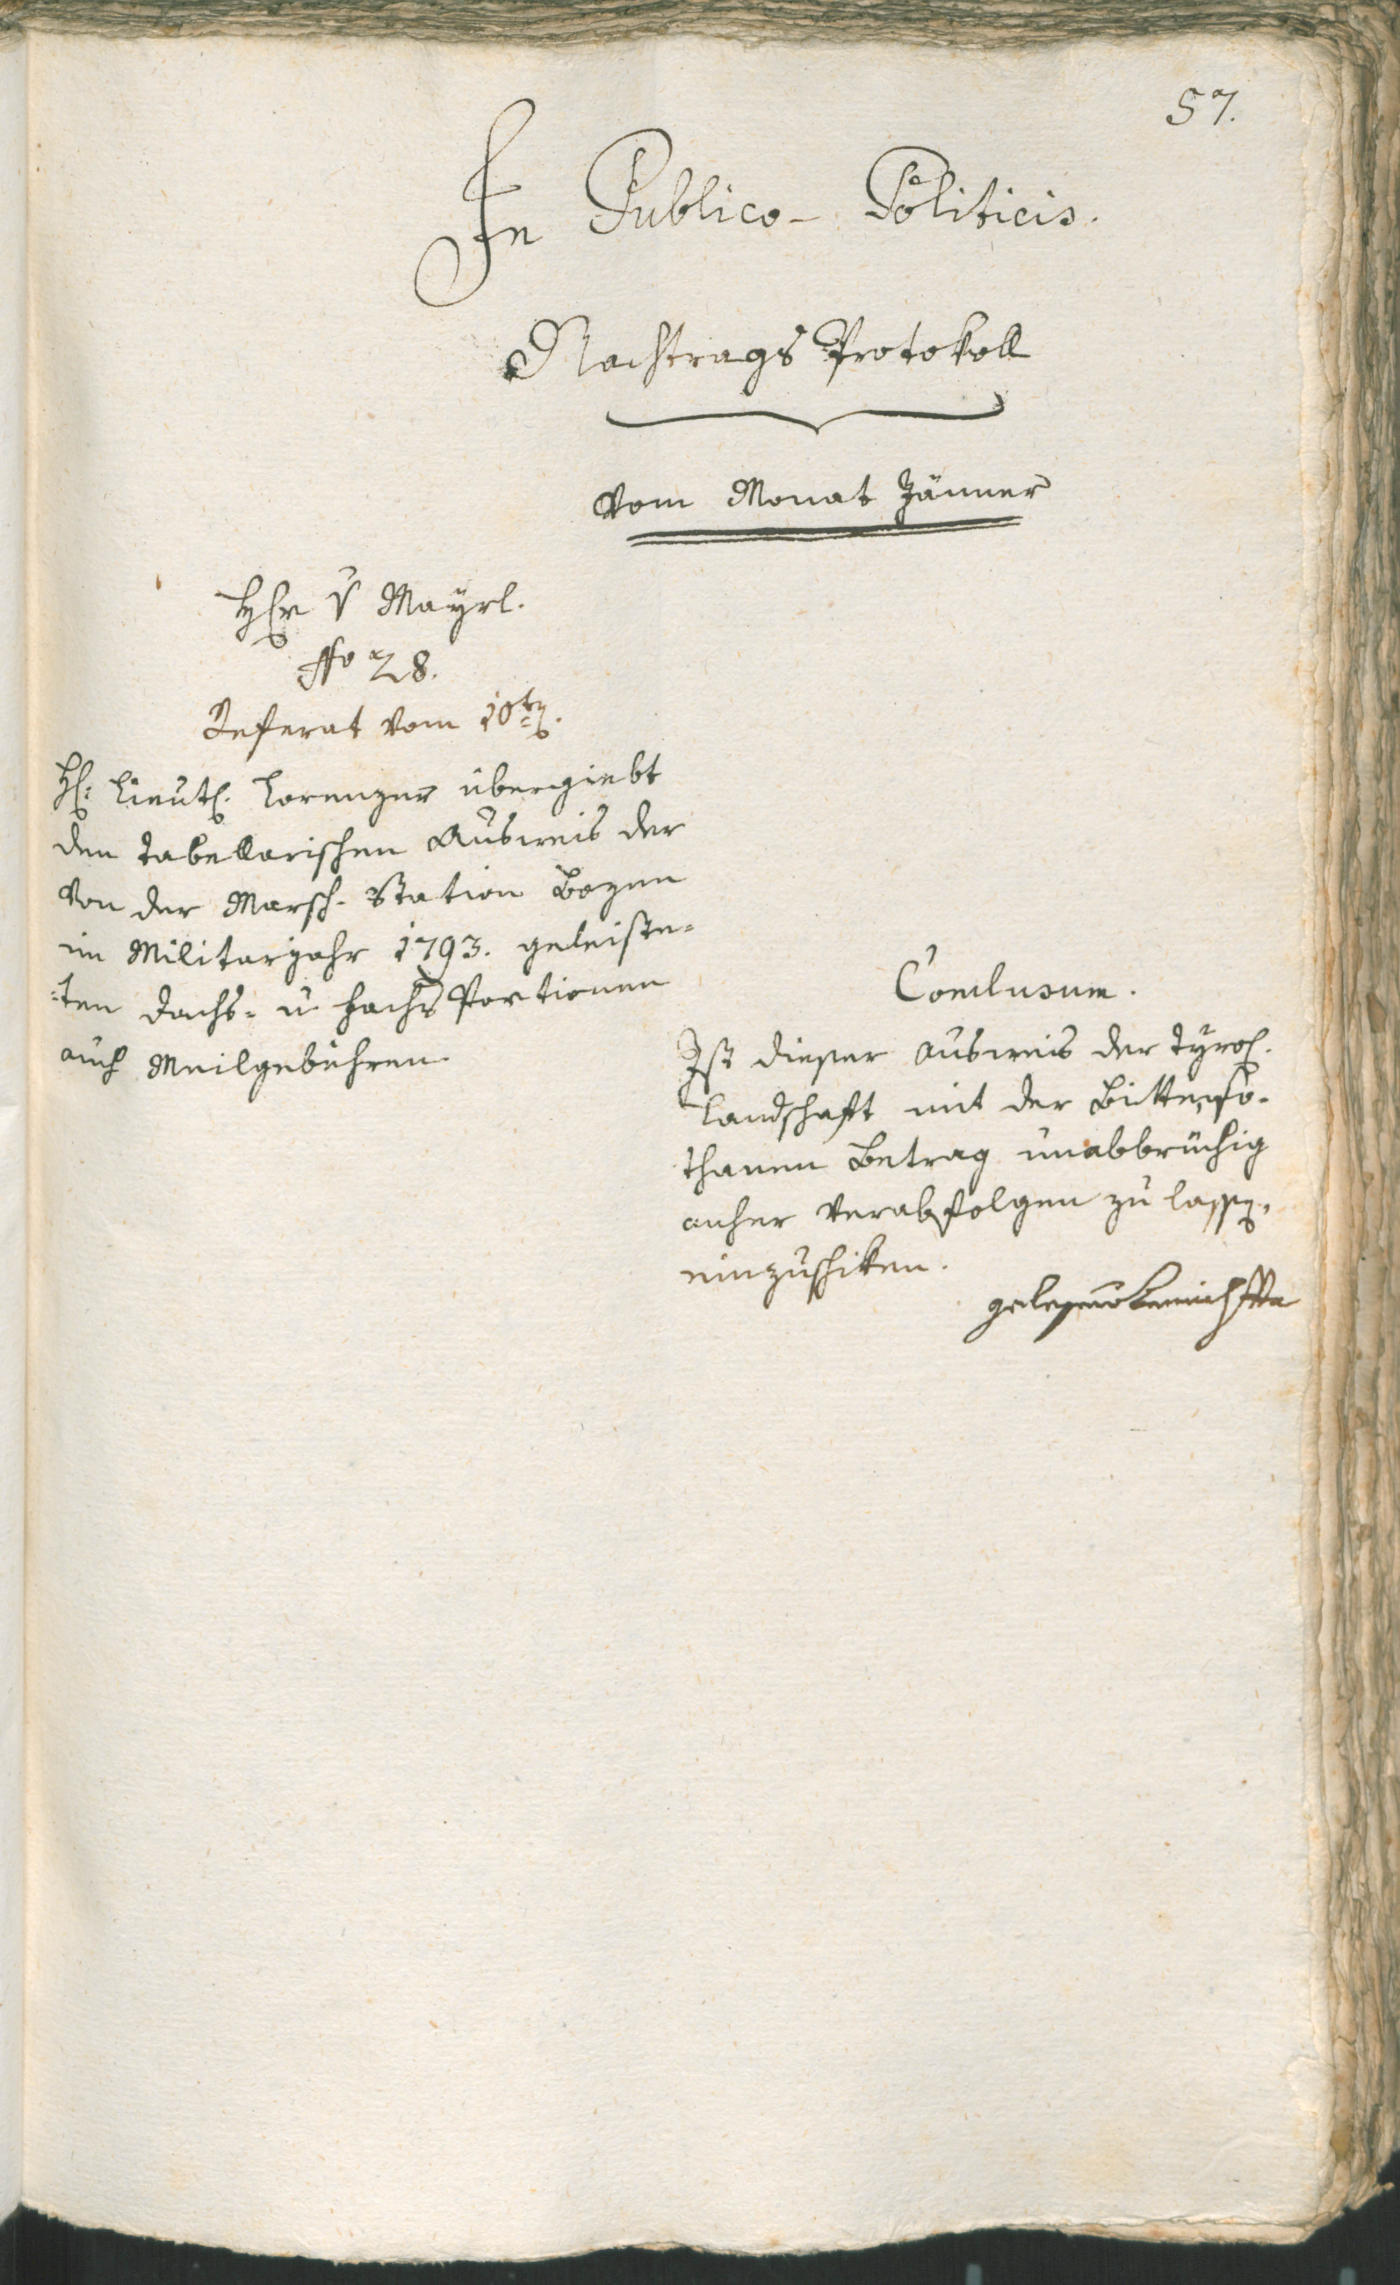 57.
In Publico-Politicis.
Nachtrags Protokoll
vom Monat Jänner
Hr v Mayrl.
No 28.
Referat vom 10t.
H: Lieut. Lorenzer übergiebt
den tabellarischen Ausweis der
von der Marsch-Station Bozen
im Militarjahr 1793. geleiste-
-ten Dachs- u Fachs Portionen
auch Meilgebühren.
Conclusum.
Ist dieser Ausweis der Tyrol.
Landschaft mit der Bitte, so-
thanen Betrag unabbrüchig
anher verabfolgen zu lassen,
einzuschiken.
gelesen